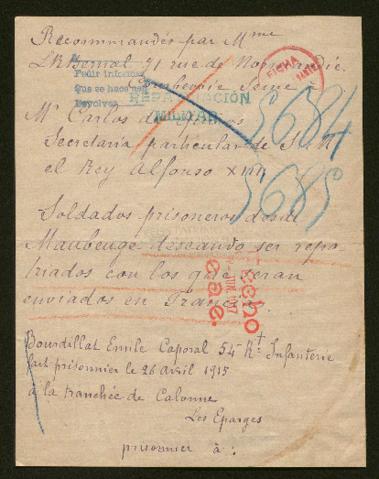 Recommandés par Mme
L R Bernal 71 rue de Normandie
Pedir informes
Courbevoie Seine à
Que se haga
Devolver
REPATRIACIÓN
MILITAR
FICHA
Mr Carlos de
Secretaria particular de S. M
el Rey Alfonso XIII
5684
5685
Soldados prisoneros desde
Maubeuge deseando ser repa
triados con los que seran
enviados en Francia.
Hecho
JUN. 1917
Bourdillat Emile Caporal 54e Rt Infanterie
fait prisonnier le 26 avril 1915
à la tranchée de Calonne
Les Eparges
prisonnier à :